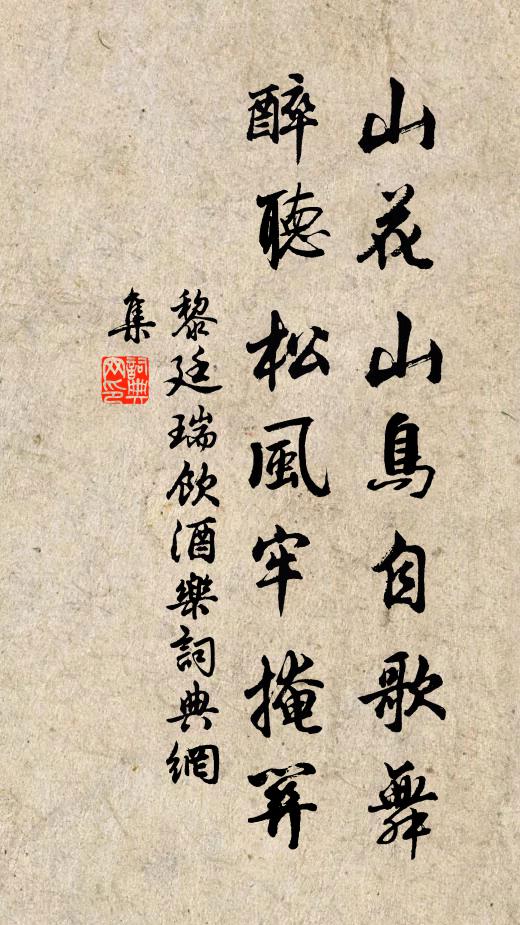 山花山鳥自歌舞
醉聽松風牢掩關
黎廷瑞飲酒樂詞典網
集
詞典
网印